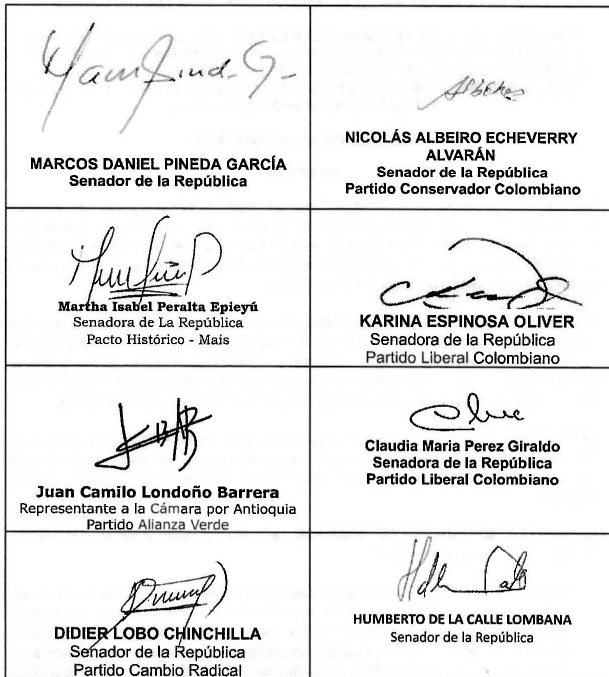 MARCOS DANIEL PINEDA GARCÍA
Senador de la República
NICOLÁS ALBEIRO ECHEVERRY
ALVARÁN
Senador de la República
Partido Conservador Colombiano
Martha Isabel Peralta Epieyú
Senadora de La República
Pacto Histórico - Mais
KARINA ESPINOSA OLIVER
Senadora de la República
Partido Liberal Colombiano
Juan Camilo Londoño Barrera
Representante a la Cámara por Antioquia
Partido Alianza Verde
Claudia Maria Perez Giraldo
Senadora de la República
Partido Liberal Colombiano
DIDIER LOBO CHINCHILLA
Senador de la República
Partido Cambio Radical
HUMBERTO DE LA CALLE LOMBANA
Senador de la República